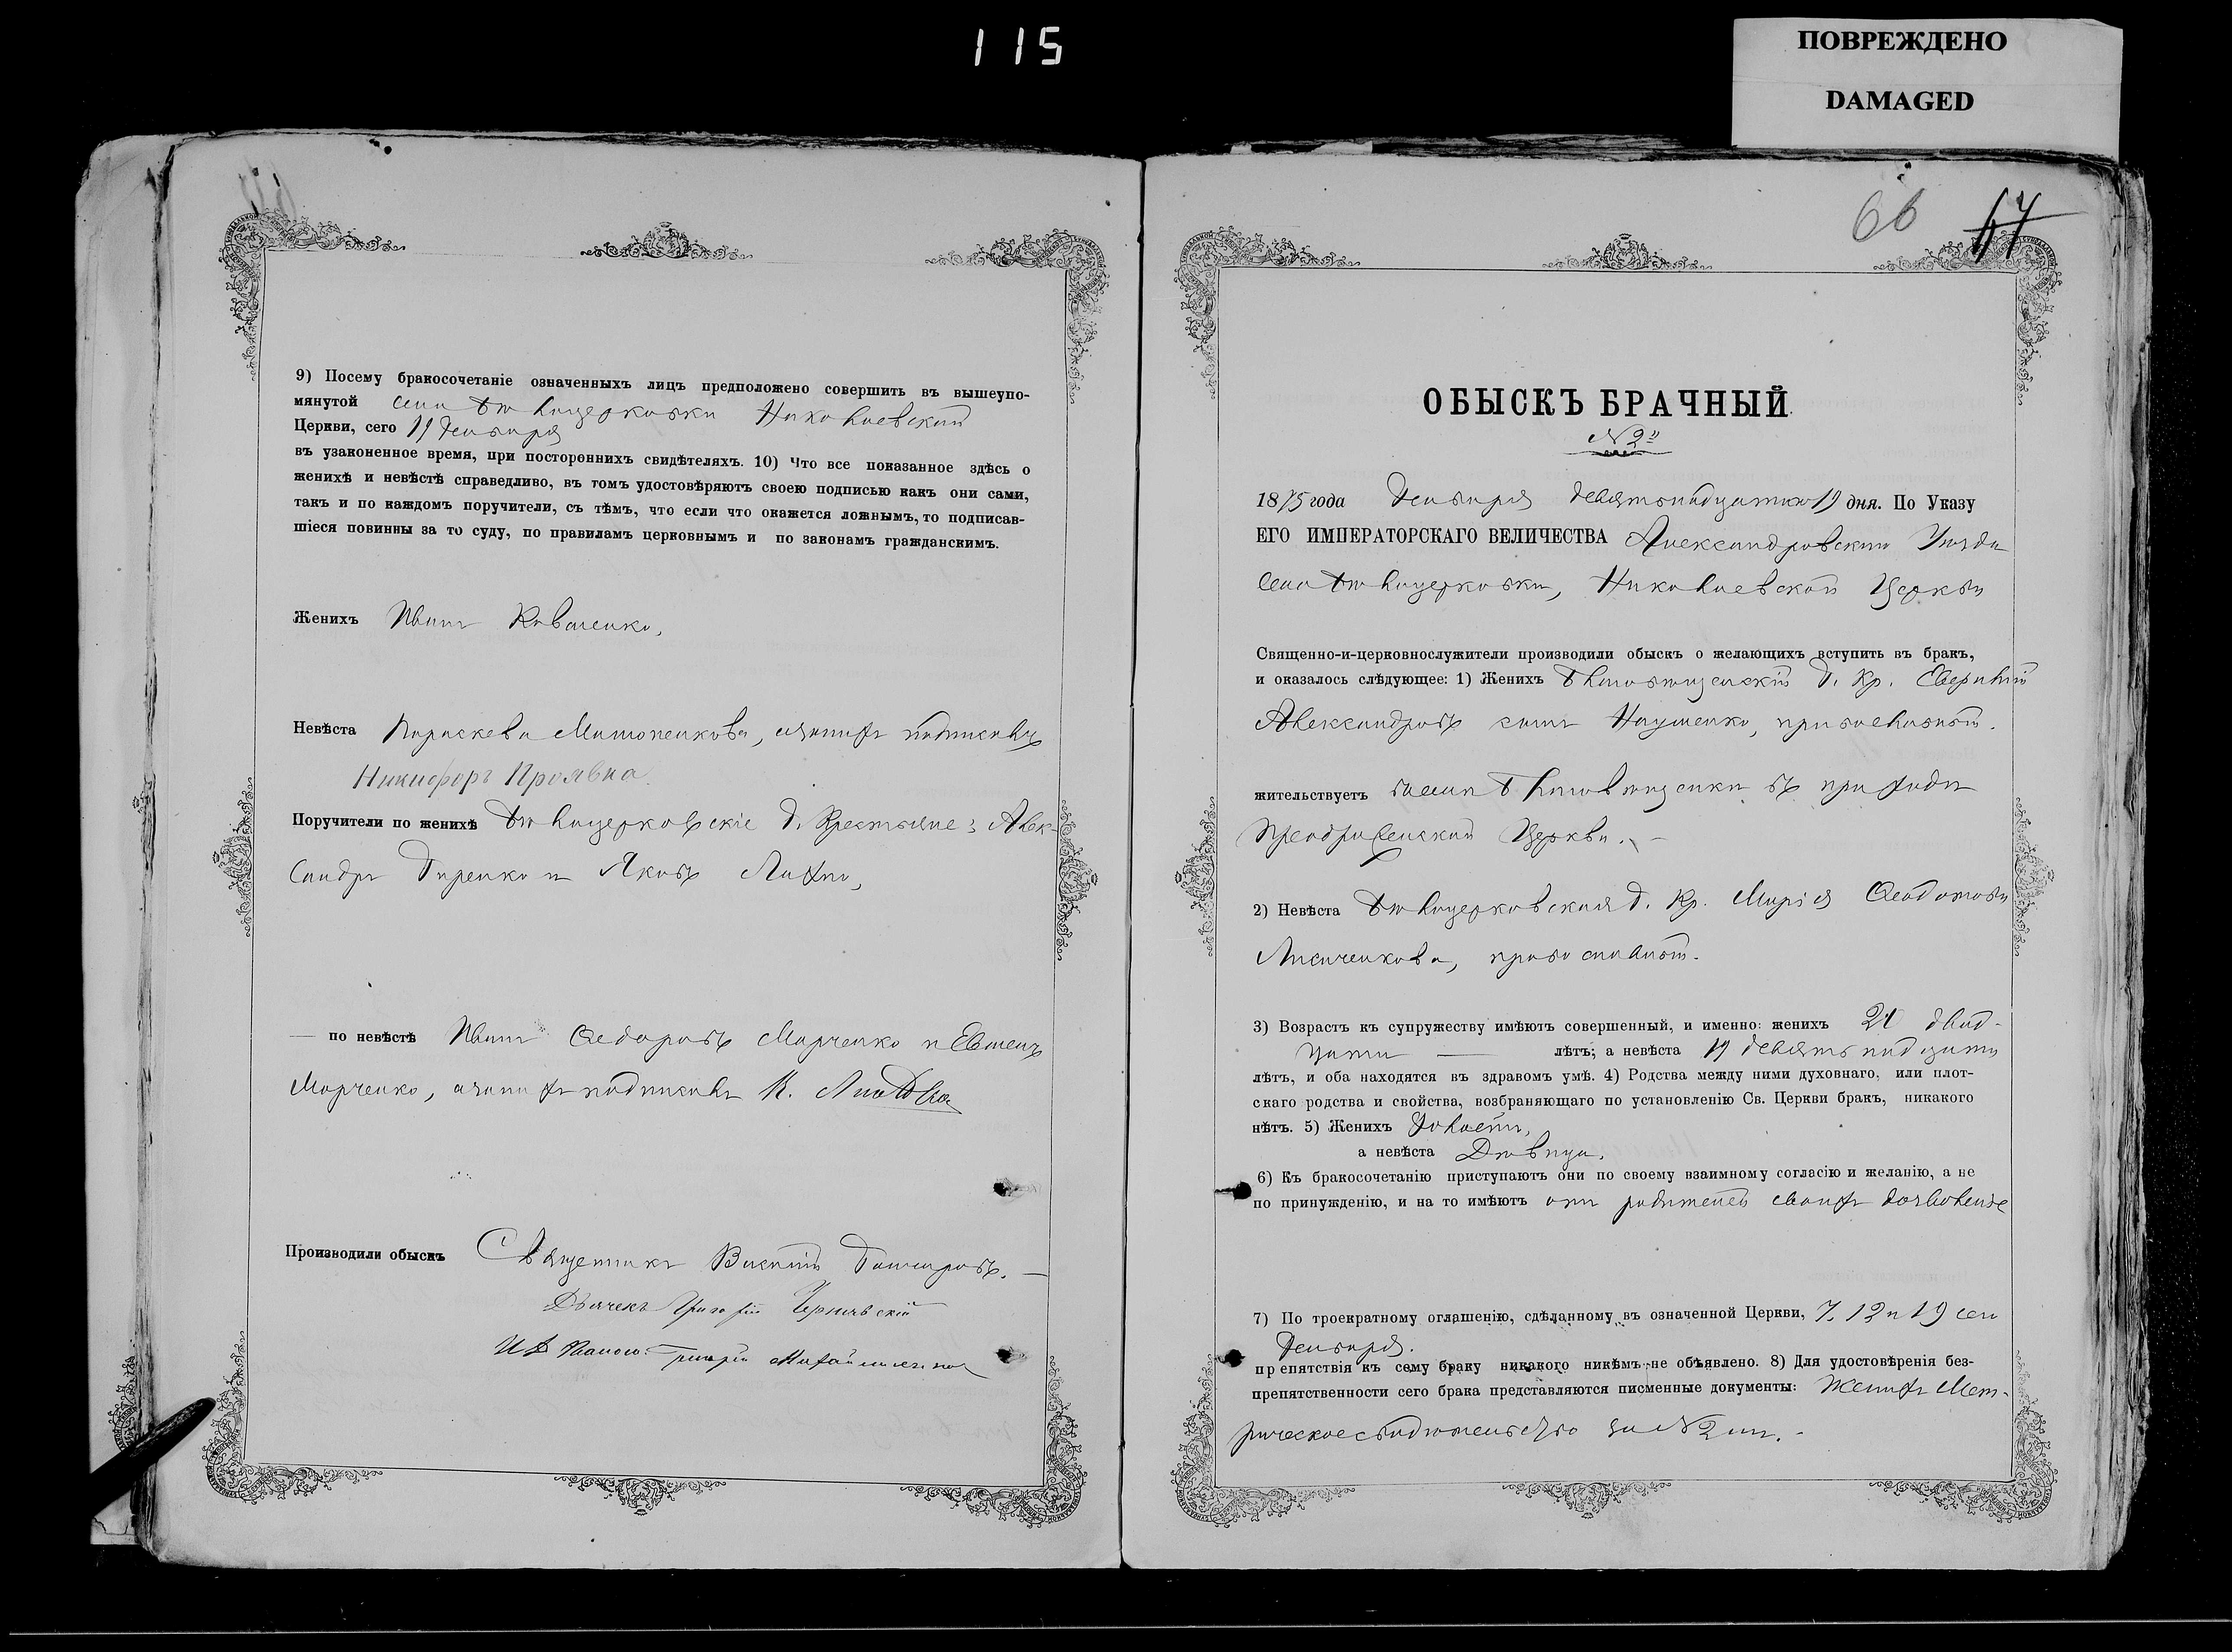 115
ПОВРЕЖДЕНО
DAMAGED
9) Посему бракосочетаніе означенныхъ лицъ предположено совершить въ вышеупо-
мянутой села Бѣлоцерковки Николаевской
Церкви, сего 19 Генваря
въ узаконенное время, при постороннихъ свидѣтеляхъ. 10) Что все показанное здѣсь о
женихѣ и невѣстѣ справедливо, въ томъ удостовѣряютъ своею подписью какъ они сами,
такъ и по каждомъ поручители, съ тѣмъ, что если что окажется ложнымъ, то подписав-
шіеся повинны за то суду, по правиламъ церковнымъ и по законамъ гражданскимъ.
Женихъ Иванъ Коваленко,
Невѣста Параскева, а за нихъ подписалъ
Никифоръ Проявка
Поручители по женихѣ Бѣлоцерковскіе г. Крестьяне: Алек-
сандръ и Яковъ
по невѣстѣ Иванъ Ѳедоровъ Марченко и
Марченко, а за нихъ подписалъ К.
Производили обыскъ Священникъ Василій
Дьячекъ Григорій Чернявскій
И Д Григорій
66 67
ОБЫСКЪ БРАЧНЫЙ.
№ 2й
1875 года Генваря девятьнадцатаго 19 дня. По Указу
ЕГО ИМПЕРАТОРСКАГО ВЕЛИЧЕСТВА Александровскаго Уѣзда
Села Бѣлоцерковки, Николаевской Церкви
Священно-и-церковнослужители производили обыскъ о желающихъ вступить въ бракъ,
и оказалось слѣдующее: 1) Женихъ Благовѣщенскій г. Кр.
Александровъ сынъ Науменко, православный.
жительствуетъ въ селѣ Благовѣщенки въ приходѣ
Церкви.
2) Невѣста Бѣлоцерковская г. Кр. Марія Ѳеодотова
Лисиченкова, православной.
3) Возрастъ къ супружеству имѣютъ совершенный, и именно: женихъ 20 двад-
цати лѣтъ; а невѣста 19 девятьнадцати
лѣтъ, и оба находятся въ здравомъ умѣ. 4) Родства между ними духовнаго, или плот-
скаго родства и свойства, возбраняющаго по установленію Св. Церкви бракъ, никакого
нѣтъ. 5) Женихъ Холостъ,
а невѣста Дѣвица.
6) Къ бракосочетанію приступаютъ они по своему взаимному согласію и желанію, а не
по принужденію, и на то имѣютъ отъ родителей своихъ дозволеніе
7) По троекратному оглашенію, сдѣланному въ означенной Церкви, 7, 12 и 19 сего
Генваря.
препятствія къ сему браку никакого никѣмъ не объявлено. 8) Для удостовѣренія без-
препятственности сего брака представляются писменные документы: Женихъ Мет-
рическое свидѣтельство за № 2мъ.